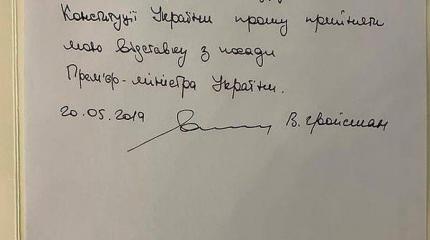 Конституції України прошу прийняти
мою відставку з посади
Прем'єр-міністра України.
20.05.2019 В. Гройсман